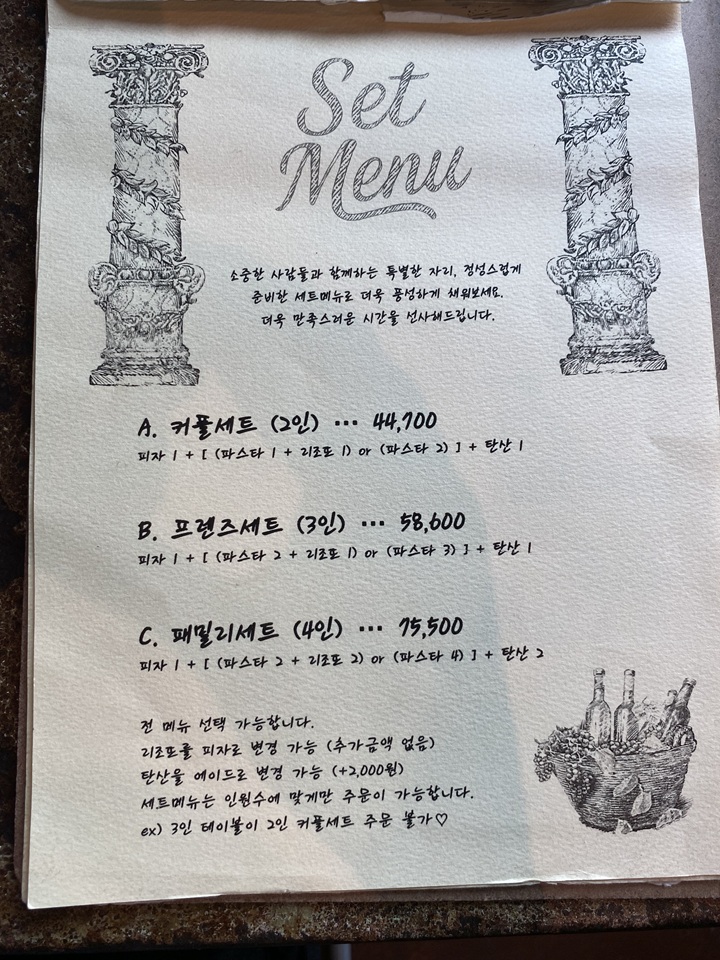 Set
Menu
소중한 사람들과 함께하는 특별한 자리, 정성스럽게
준비한 세트메뉴로 더욱 풍성하게 채워보세요.
더욱 만족스러운 시간을 선사해드립니다.
A. 커플세트 (2인) ··· 44,700
피자 1 + [ (파스타 1 + 리조또 1) or (파스타 2) ] + 탄산 1
B. 프렌즈세트 (3인) ··· 58,600
피자 1 + [ (파스타 2 + 리조또 1) or (파스타 3) ] + 탄산 1
C. 패밀리세트 (4인) ··· 75,500
피자 1 + [ (파스타 2 + 리조또 2) or (파스타 4) ] + 탄산 2
전 메뉴 선택 가능합니다.
리조또를 피자로 변경 가능 (추가금액 없음)
탄산을 에이드로 변경 가능 (+2,000원)
세트메뉴는 인원수에 맞게만 주문이 가능합니다.
ex) 3인 테이블이 2인 커플세트 주문 불가♡